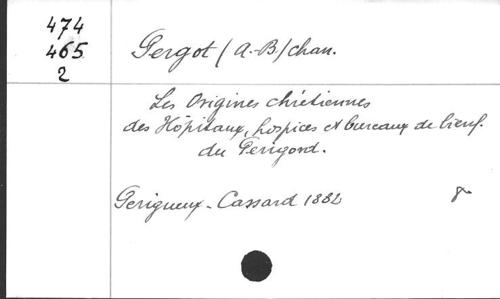 474
465
2
Pergot (A.-B) chan.
Les Origines chrétiennes
des Hôpitaux, hospices et bureaux de bienf.
du Perigord.
Perigueux - Cassard 1882
8º